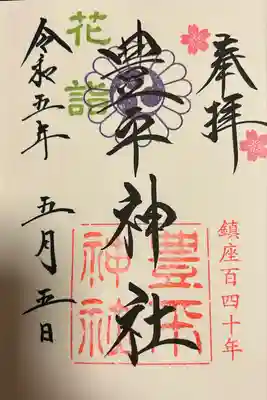 奉拝
鎮座百四十年
豊平神社
豊平
神社
花詣
令和五年
五月五日